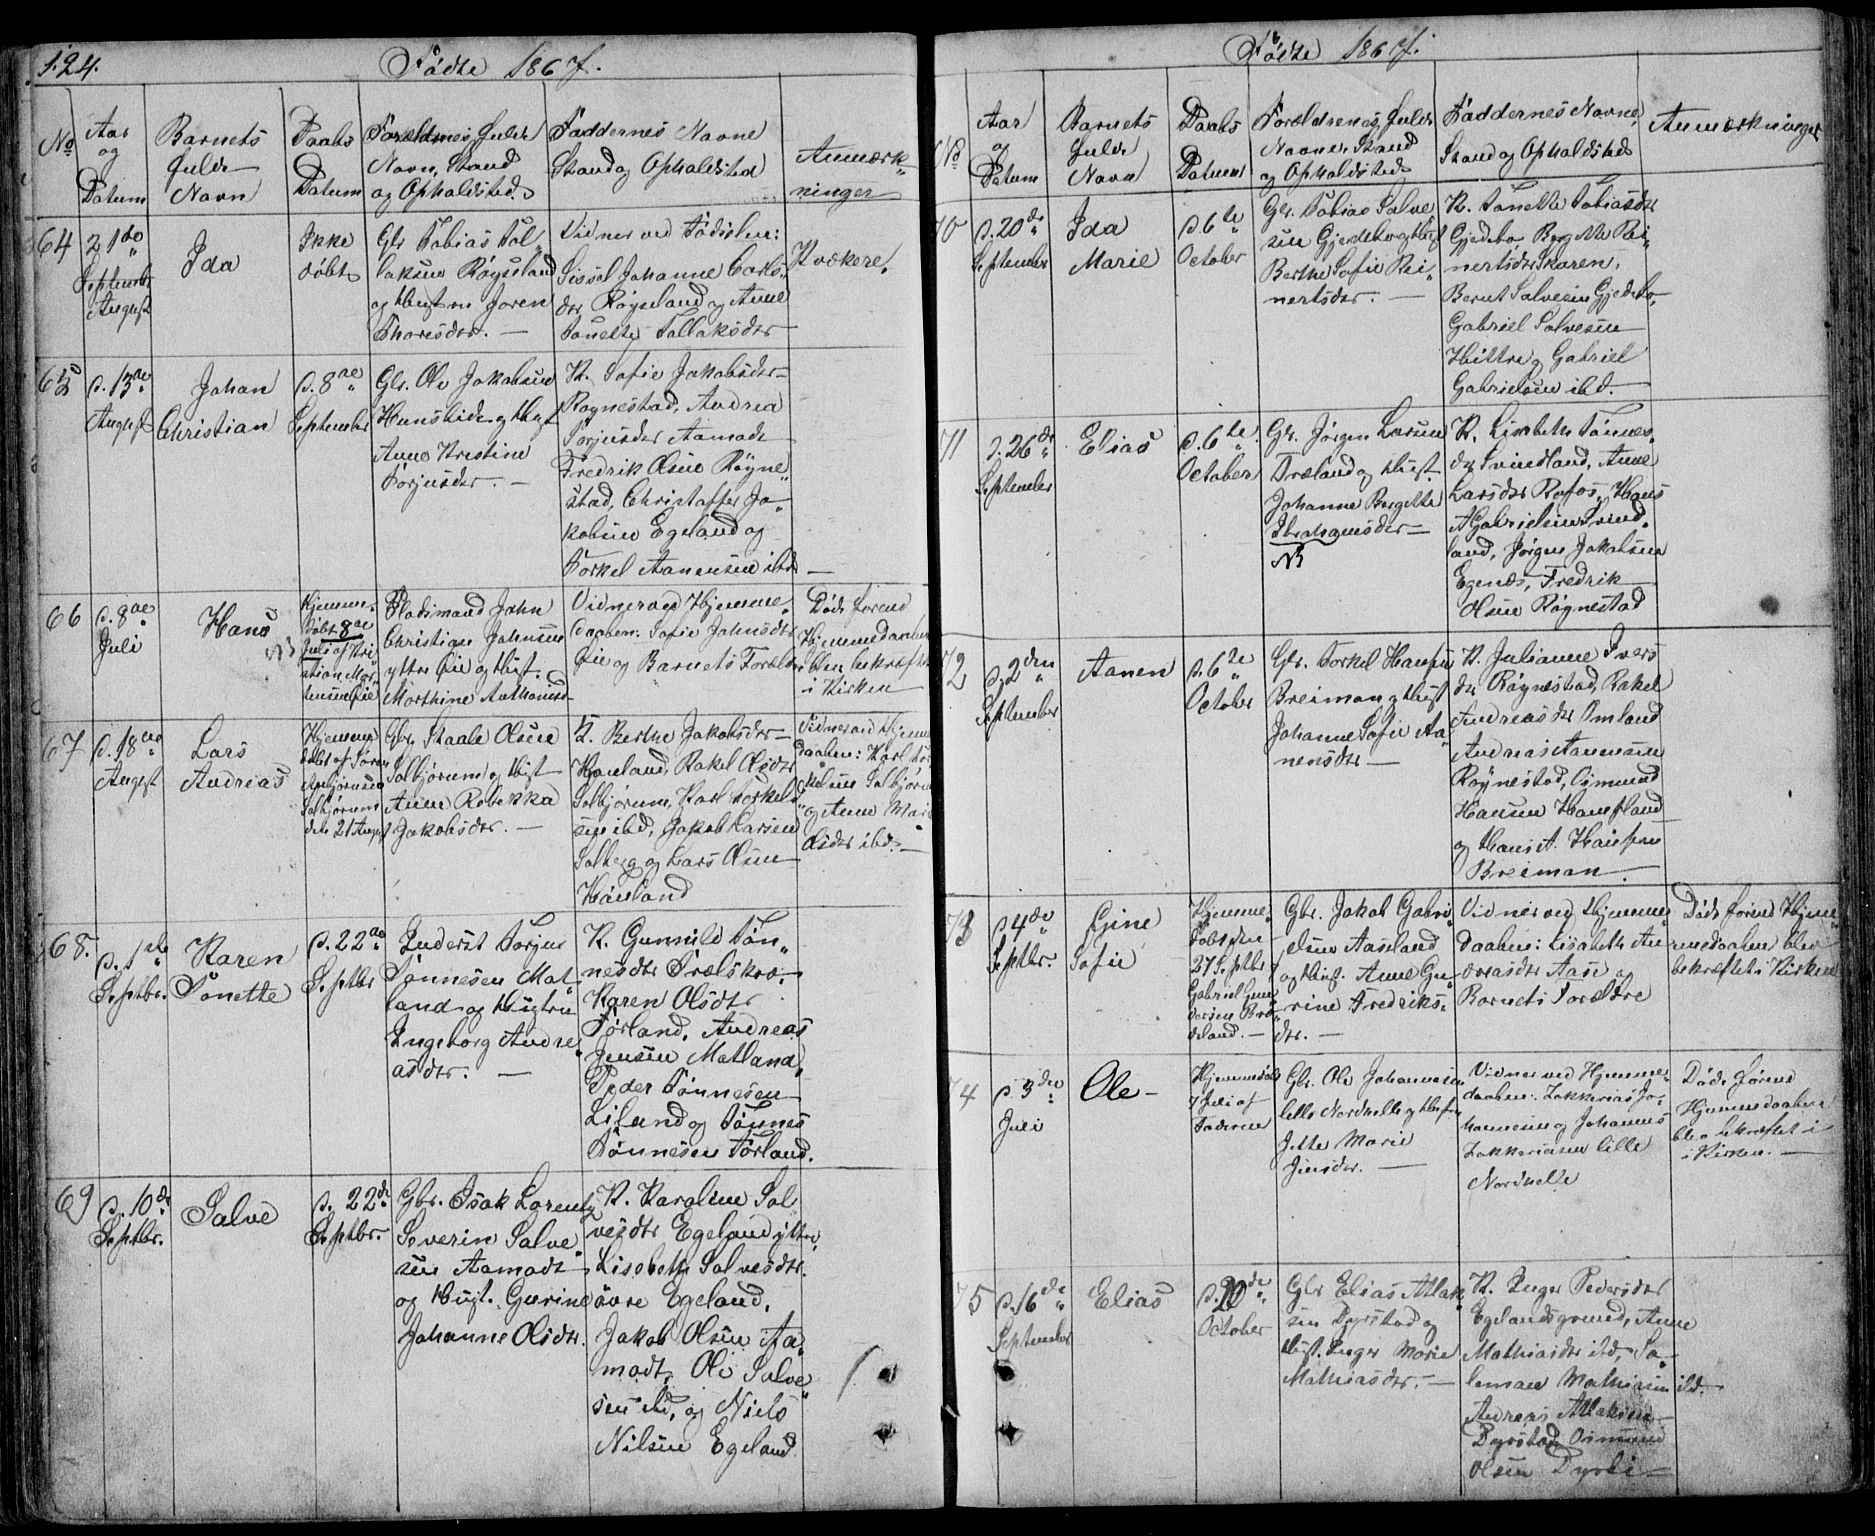 124.
Fødte 1867.
No
Aar
og
Datum
Barnets
fulde
Navn
Daabs
Datum
Forældrenes fulde
Navn, Stand
og Opholdsted
Faddernes Navne
Stand og Opholdsted
Anmærk
ninger
64
21de
September
August
Ida
Ikke
døbt
Gbr Tobias Tol
laksen Røyseland
og Hustru Joren
Thoresdtr. —
Vidner ved Fødselen:
Sissel Johanne
dtr Røyseland og Anne
Tonette Tollaksdtr
Kvækere.
65
d. 13de
August
Johan
Christian
d. 8de
September
Gbr. Ole Jakobsen
Hunsbide og Hust
Anne Kristine
Torjusdtr. —
K. Sofie Jakobsdtr
Røynestad, Andrea
Torjusdtr Aamodt
Fredrik Olsen Røyne
stad, Christoffer Ja
kobsen Egeland og
Torkel Aanensen ibd —
66
d. 8de
Juli
Hans
Hjemme
døbt 8de
Juli af Kri
stian Mor
tensen Øie
Pladsmand John
Christian Johnsen
yttre Øie og Hust.
Morthine Anthonsd
Vidner ved Hjemme
daaben: Sofie Johnsdtr
Øie og Barnets Foræld
Døds førend
Hjemmedaaben
blev bekræftet
i Kirken
67
d. 18de
August
Lars
Andreas
Hjemme
døbt af Søren
Asbjørnsen
Solbjørum
den 21 August
Gbr. Staale Olsen
Solbjørum og Hust
Anne Rebekka
Jakobsdtr. —
K. Berthe Jakobsdtr
Houland, Rakel Olsdtr
Solbjørum, Karl Torkels
sen ibd, Jakob Larsen
Solberg og Lars Olsen
Houland
Vidner ved Hjemme
daaben: Karl Tor
kelsen Solbjørum
og Anne Marie
Olsdtr ibd. —
68.
d. 1ste
Septbr.
Karen
Tonette
d. 22de
Septbr
Inderst Torjus
Tønnesen Mot
land og Hustru
Ingeborg Andre
asdtr. —
K. Gunnild Tøn
nesdtr Trælskro
Karen Olsdtr
Førland, Andreas
Jensen Matland,
Peder Tønnesen
Liland og Tønnes
Tønnesen Førland.
69
d. 10de
Septbr.
Salve
d. 22de
Septbr.
Gbr. Isak Lorents
Severin Salve
sen Aamodt
og Hust. Gurine
Johanne Olsdtr.
K. Karoline Sal
vesdtr Egeland yttre,
Lisebeth Salvesdtr.
øvre Egeland,
Jakob Olsen Aa
modt, Ole Salve
sen ibd, og Niels
Nilsen Egeland.
Fødte 1867.
No
Aar
og
Datum
Barnets
fulde
Navn
Daabs
Datum
Forældrenes fulde
Navne, Stand
og Opholdsted
Faddernes Navne,
Stand og Opholdsted
Anmærkninger
70
d. 20de
September
Ida
Marie
d. 6te
October
Gbr. Tobias Salve
sen Gjedebo og Hust
Berthe Sofie Rei
nertsdtr. —
K. Tonette Tobiasdtr
Gjedebo, Berg Na Rei
nertsdtr Skaren,
Bernt Salvesen Gjedebo,
Gabriel Salvesen
Hittre og Gabriel
Gabrielsen ibd.
71
d. 26de
September
Elias
d. 6te
October
Gbr. Jørgen Larsen
Træland og Hust.
Johanne Bergitte
Abrahamsdtr —
NB
K. Lisebeth Tønnes
dtr Svindland, Anne
Larsdtr Rafos, Hans
A Gabrielsen Svind
land, Jørgen Jakobsen
Egenæs, Fredrik
Olsen Røynestad
72
d. 2den
September
Aanen
d. 6te
October
Gbr. Torkel Hansen
Breiman og Hust
Johanne Sofie Aa
nensdtr —
K. Julianne Ivers
dtr Røynestad, Rakel
Andreasdtr Omland
Andreas Aanensen
Røynestad, Osmund
Hansen Homfland
og Hans A. Hansen
Breiman.
73
d. 4de
Septbr.
Gine
Sofie
Hjemme
døbt den
27 Septbr
Gabriel Gun
dersen Brø
deland. —
Gbr. Jakob Gabri
elsen Aaseland
og Hust. Anne Gu
rine Fredriks
dtr. —
Vidner ved Hjemme
daaben: Lisabeth An
dreasdtr Aase og
Barnets Forældre
Døds førend Hjem
medaaben blev
bekræftet i Kirken
74
d. 3den
Juli
Ole
Hjemmedøbt
7 Juli af
Faderen
Gbr. Ole Johannesen
lille Nordhelle og Hust
Jette Marie
Jensdtr. —
Vidner ved Hjemme
daaben: Zakkarias Jo
hannesen og Johannes
Zakkariasen lille
Nordhelle
Døds førend
Hjemmedaaben
blev bekræftet i
i Kirken. —
75
d. 16de
September
Elias
d. 20de
October
Gbr Elias Atlak
sen Dyrstad og
Hust. Inger Marie
Mathiasdtr. —
K. Inger Pedersdtr
Egelandsgrund, Anne
Mathiasdtr ibd, Sa
lomon Mathiesen ibd.
Andreas Atlaksen
Dyrstad, Osmund
Olsen Dyrli